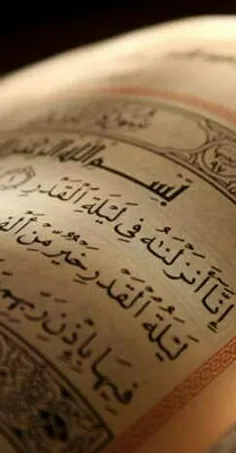 بِسْمِ اللَّهِ
إِنَّا أَنزَلْنَٰهُ فِي لَيْلَةِ الْقَدْرِ
لَيْلَةُ الْقَدْرِ خَيْرٌ مِّنْ أَلْفِ
فِيهَا بِإِذْنِ رَبِّهِم